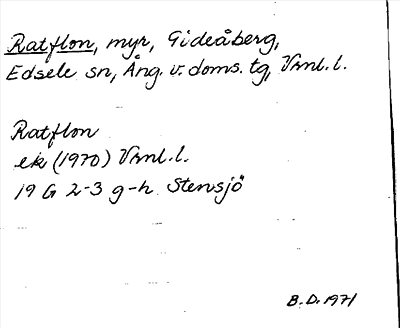 Ratflon, myr, Gideåberg,
Edsele sn, Ång. v. doms. tg, Vrnl. l.
Ratflon
ek (1970) Vrnl. l.
19 G 2-3 g-h Stensjö
B.D. 1971